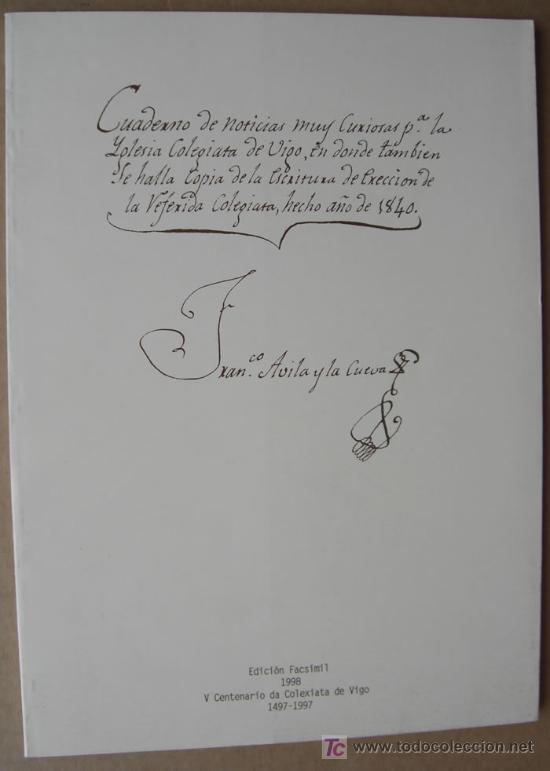 Cuaderno de noticias muy Curiosas p.ª la
Yglesia Colegiata de Vigo, en donde tambien
Se halla Copia de la Escritura de Ereccion de
la Referida Colegiata, hecho año de 1840.
Fran.co Avila y la Cueva
Edición Facsimil
1998
V Centenario da Colexiata de Vigo
1497-1997
TC www.todocoleccion.net